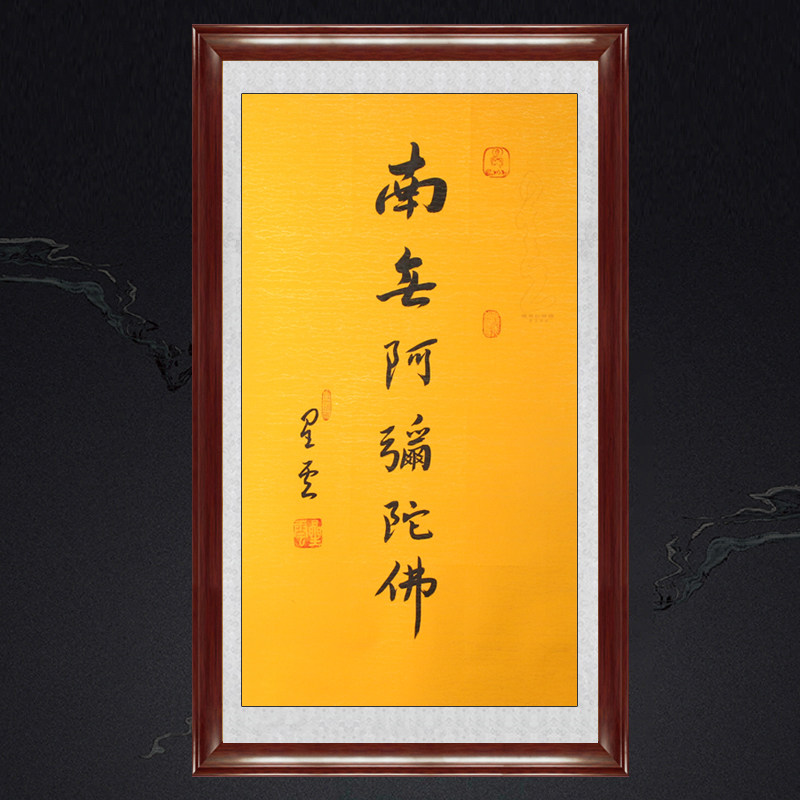 南无阿彌陀佛
星雲